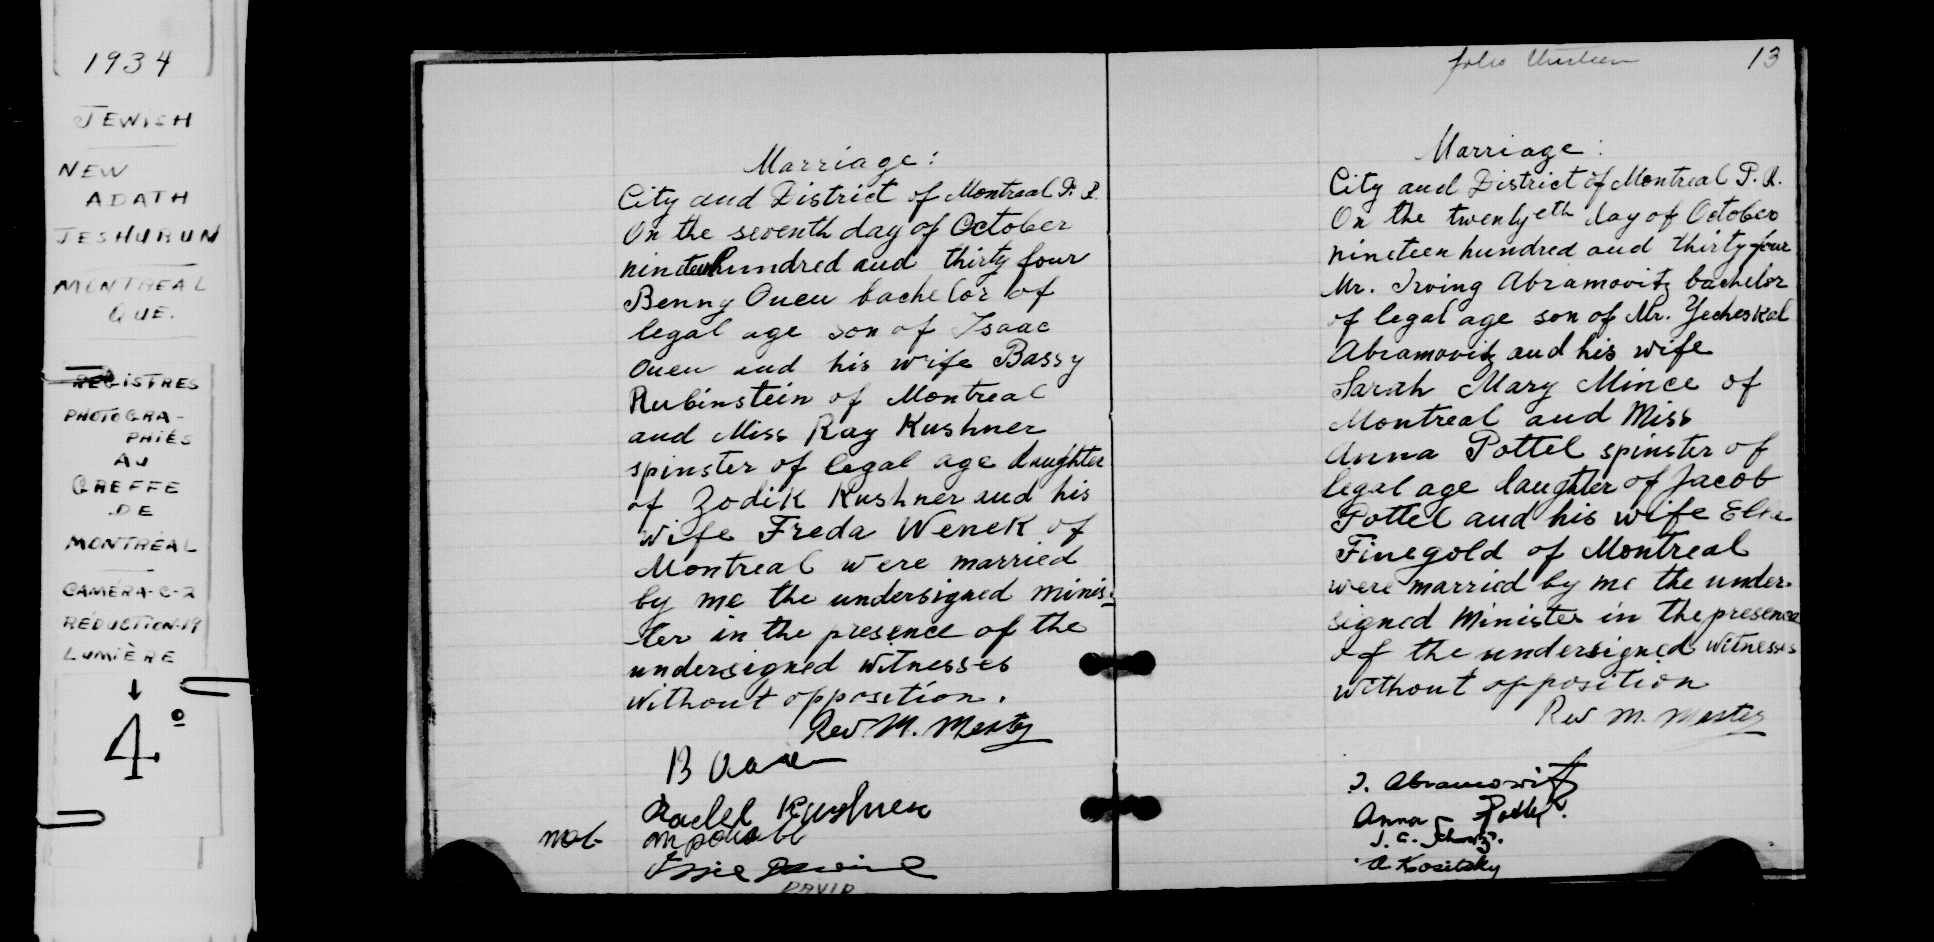 1934
JEWISH
NEW
ADATH
JESHURUN
MONTREAL
QUE.
REGISTRES
PHOTOGRA-
PHIÉS
AU
GREFFE
DE
MONTRÉAL
CAMÉRA-C-2
RÉDUCTION-19
LUMIÈRE
↓
4°
Marriage:
City and District of Montreal P. Q.
On the seventh day of October
nineteen hundred and thirty four
Benny Ouen bachelor of
legal age son of Isaac
Ouen and his wife Bassy
Rubinstein of Montreal
and Miss Ray Kushner
spinster of legal age daughter
of Zodik Kushner and his
wife Freda Wenek of
Montreal were married
by me the undersigned minis-
ter in the presence of the
undersigned witnesses
without opposition.
Rev. M. Mestez
B
Rachel Kushner
DAVID
folio thirteen 13
Marriage:
City and District of Montreal P. Q.
On the twentyeth day of October
nineteen hundred and thirty four
Mr. Irving Abramovitz bachelor
of legal age son of Mr. Yecheskal
Abramovitz and his wife
Sarah Mary Mince of
Montreal and Miss
Anna Pottel spinster of
legal age daughter of Jacob
Pottel and his wife Elka
Finegold of Montreal
were married by me the under-
signed Minister in the presence
of the undersigned witnesses
without opposition
Rev M. Mestez
I. Abramowitz
Anna Pottel.
J. C.
A Kositsky